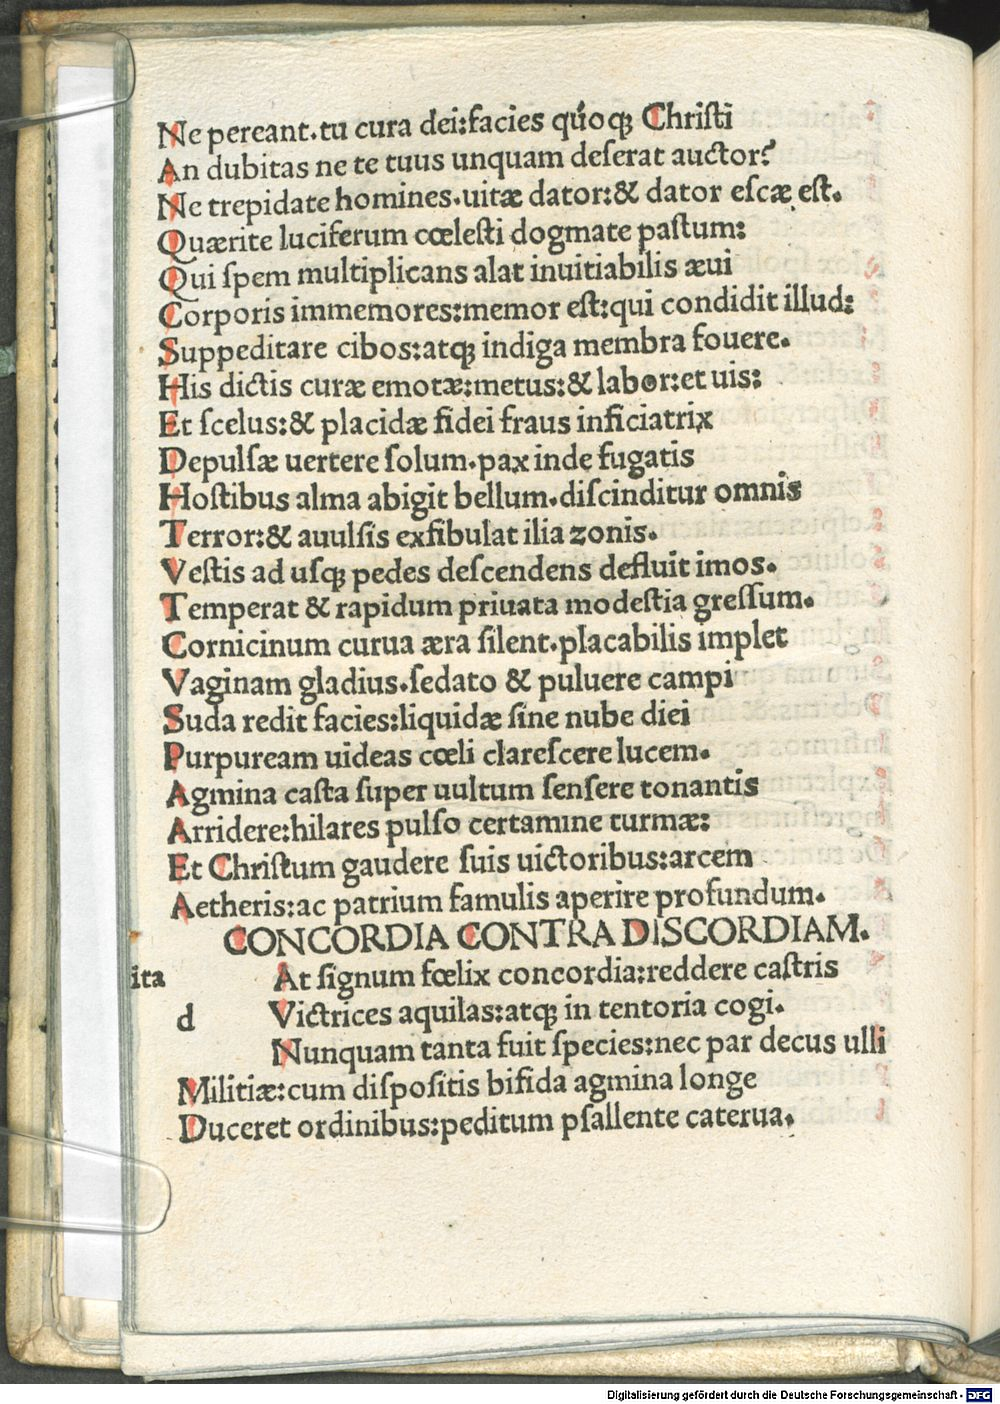 Ne pereant.tu cura dei:facies quoqꝫ Christi
An dubitas ne te tuus unquam deserat auctor?
Ne trepidate homines.uitæ dator:& dator escæ est.
Quærite luciferum cœlesti dogmate pastum:
Qui spem multiplicans alat inuitiabilis æui
Corporis immemores:memor est:qui condidit illud:
Suppeditare cibos:atqꝫ indiga membra fouere.
His dictis curæ emotæ:metus:& labor:et uis:
Et scelus:& placidæ fidei fraus inficiatrix
Depulsæ uertere solum.pax inde fugatis
Hostibus alma abigit bellum.discinditur omnis
Terror:& auulsis exfibulat ilia zonis.
Vestis ad usqꝫ pedes descendens defluit imos.
Temperat & rapidum priuata modestia gressum.
Cornicinum curua æra silent.placabilis implet
Vaginam gladius.sedato & puluere campi
Suda redit facies:liquidæ sine nube diei
Purpuream uideas cœli clarescere lucem.
Agmina casta super uultum sensere tonantis
Arridere:hilares pulso certamine turmæ:
Et Christum gaudere suis uictoribus:arcem
Aetheris:ac patrium famulis aperire profundum.
CONCORDIA CONTRA DISCORDIAM.
ita At signum fœlix concordia:reddere castris
d Victrices aquilas:atqꝫ in tentoria cogi.
Nunquam tanta fuit species:nec par decus ulli
Militiæ:cum dispositis bifida agmina longe
Duceret ordinibus:peditum psallente caterua.
Digitalisierung gefördert durch die Deutsche Forschungsgemeinschaft - DFG